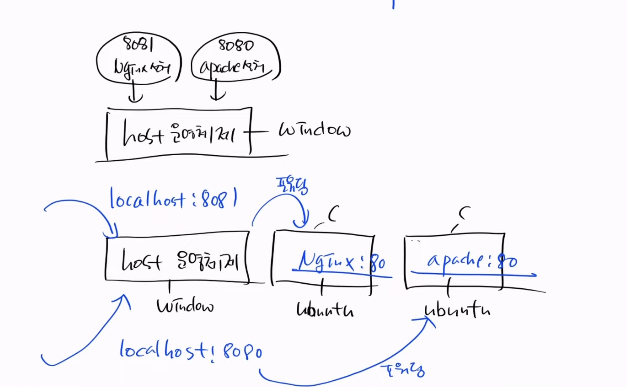 8081
Nginx서버
8080
apache서버
host 운영체제
window
localhost:8081
포워딩
C
C
host 운영체제
Nginx:80
apache:80
window
ubuntu
ubuntu
localhost:8080
포워딩